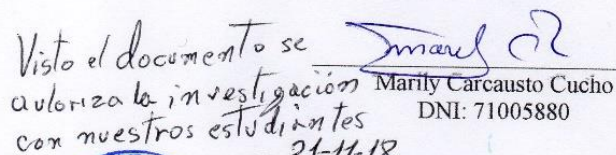 Visto el documento se
autoriza la investigación
con nuestros estudiantes
21-11-18
Marily Carcausto Cucho
DNI: 71005880